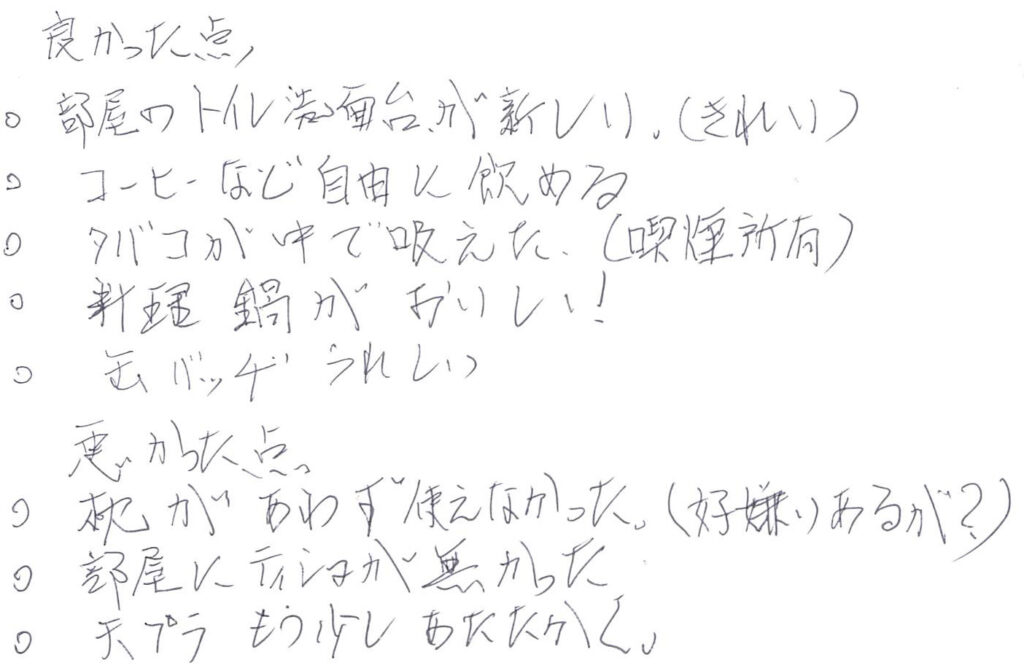 良かった点、
○ 部屋のトイレ洗面台が新しい。(きれい)
○ コーヒーなど自由に飲める
○ タバコが中で吸えた。(喫煙所有)
○ 料理 鍋が おいしい!
○ 缶バッヂ うれしい
悪かった点、
○ 枕が あわず使えなかった。(好嫌いあるが?)
○ 部屋にティシュが無かった
○ 天プラ もう少し あたたかく。